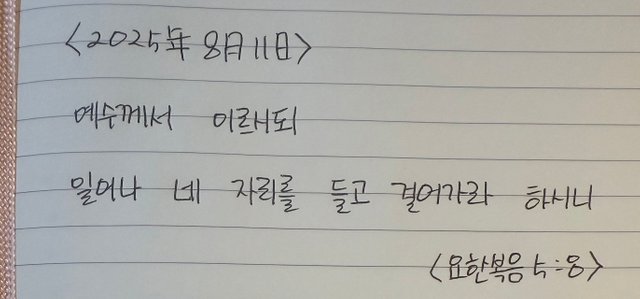 <2025年 8月 11日>
예수께서 이르시되
일어나 네 자리를 들고 걸어가라 하시니
<요한복음 5:8>